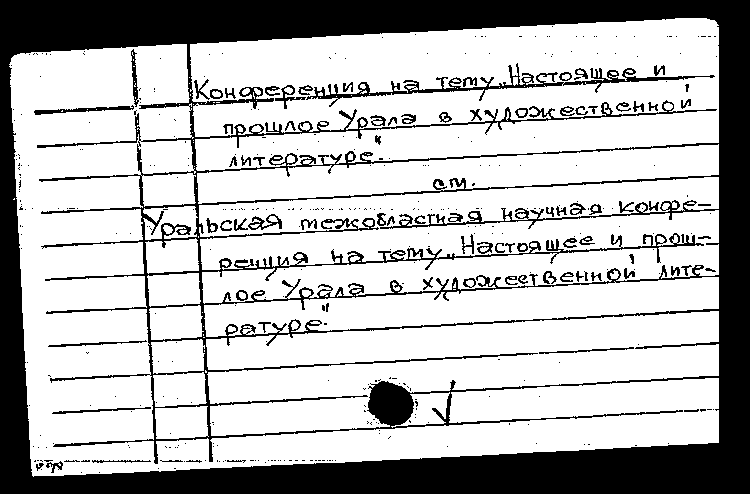 Конференция на тему „Настоящее и
прошлое Урала в художественной
литературе".
см.
Уральская межобластная научная конфе-
ренция на тему „Настоящее и прош-
лое Урала в художественной лите-
ратуре".